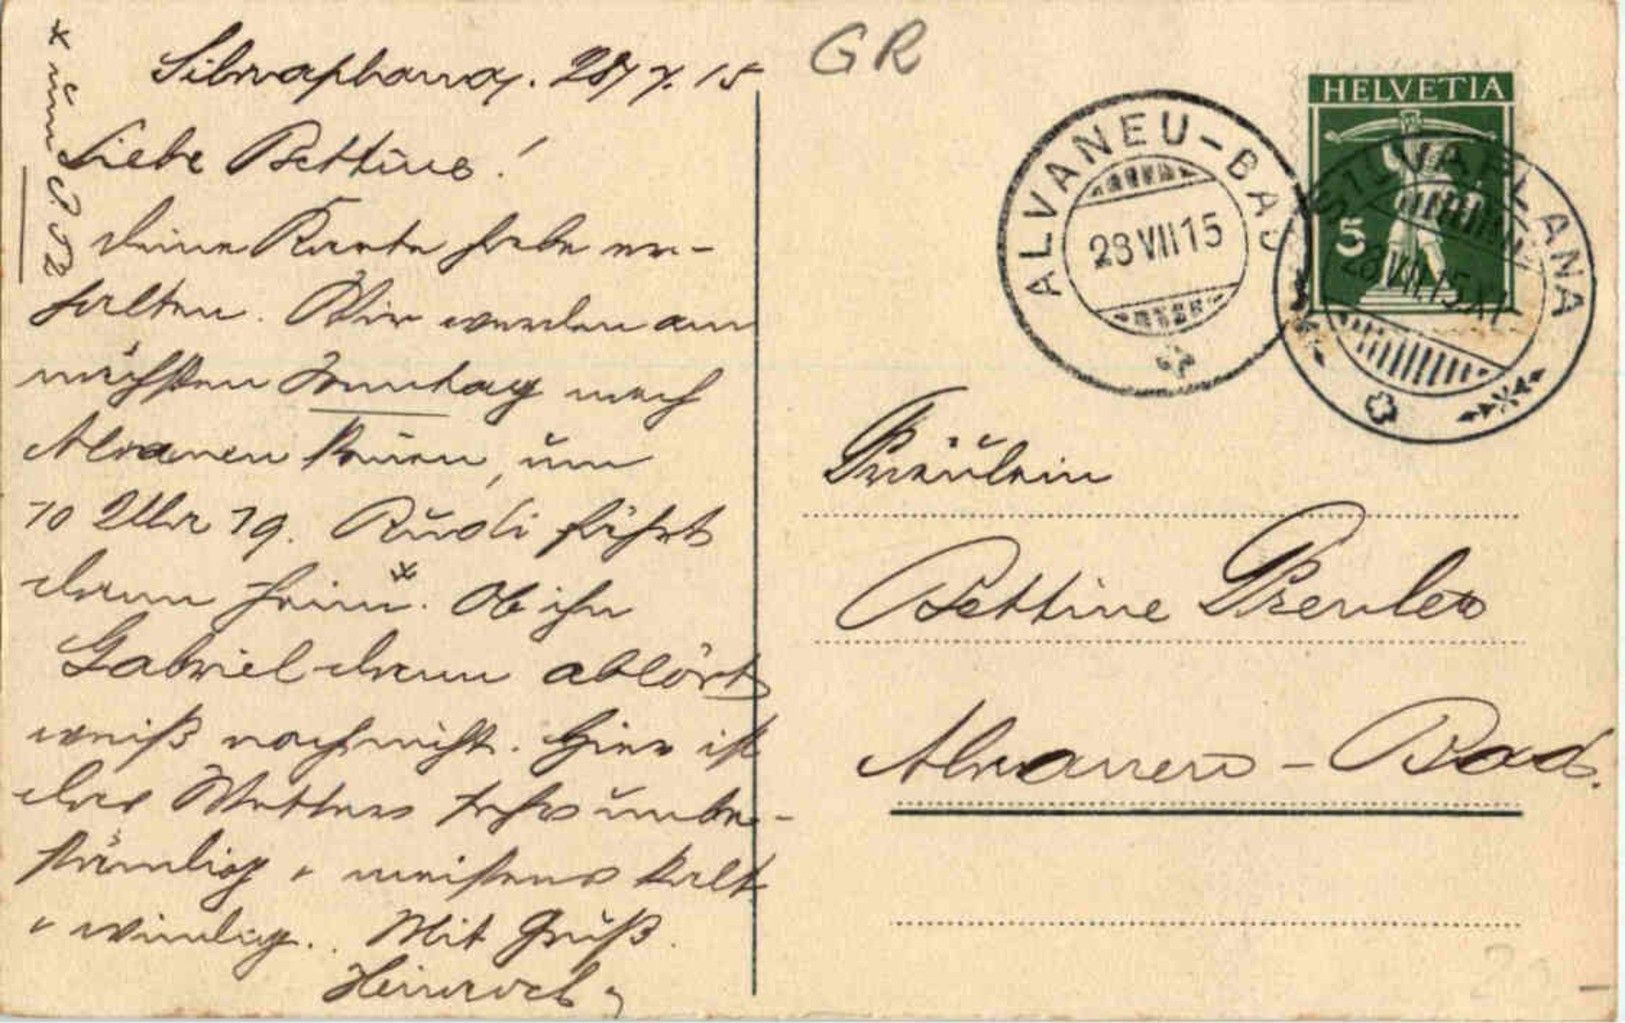 * um 9 52
Silvaplana. 28/7. 15
Liebe Bettina!
Deine Karte habe er-
halten. Wir werden am
nächsten Sonntag nach
Alvaneu kommen, um
10 Uhr 19. Rudi fährt
dann heim*. Ob ihn
Gabriel dann ablöst
weiß noch nicht. Hier ist
das Wetter sehr unbe-
ständig & meistens kalt
& windig. Mit Gruß.
Heinrich
GR
HELVETIA
5
ALVANEU-BAD
28 VII 15
SILVAPLANA
28.VII.15.XI
Fräulein
Bettina
Alvaneu-Bad.